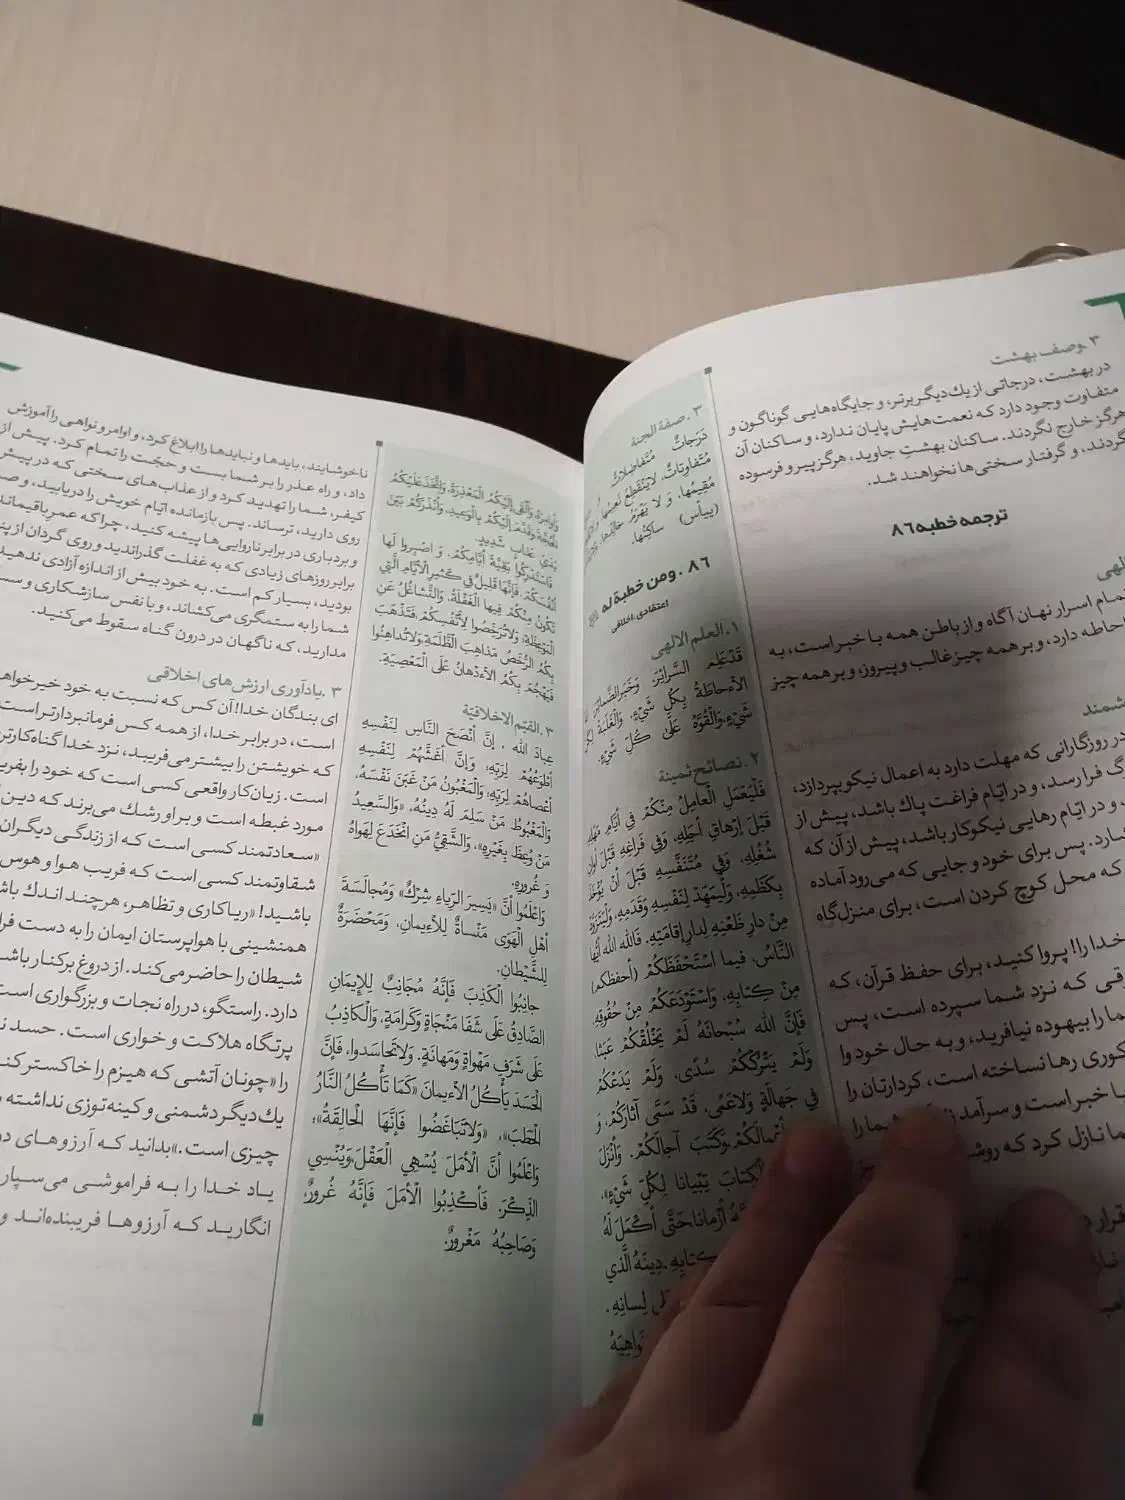 ۳ .وصف بهشت
در بهشت، درجاتی از یك دیگر برتر، و جایگاه‌هایی گوناگون و
متفاوت وجود دارد که نعمت‌هایش پایان ندارد، و ساکنان آن
هرگز خارج نگردند. ساکنان بهشتِ جاوید، هرگز پیر و فرسوده
گردند، و گرفتار سختی‌ها نخواهند شد.
ترجمه خطبه ۸۶
الهی
تمام اسرار نهان آگاه و از باطن همه با خبر است، به
احاطه دارد، و بر همه چیز غالب و پیروز، و بر همه چیز
در روزگارانی که مهلت دارد به اعمال نیکو بپردازد،
فرا رسد، و در ایّام فراغت پاك باشد، پیش از
و در ایام رهایی نیکوکار باشد، پیش از آن که
پس برای خود و جایی که می‌رود آماده
که محل کوچ کردن است، برای منزل‌گاه
خدا را! پروا کنید، برای حفظ قرآن، که
که نزد شما سپرده است، پس
را بیهوده نیافرید، و به حال خود وا
کوری رها نساخته است، کردارتان را
با خبر است و سرآمد
نازل کرد که
۳ .صفة الجنة
دَرَجاتٌ مُتَفاضِلاتٌ،
مُتَفاوِتاتٌ، لايَنْقَطِعُ نَعيمُها
مُقيمُها، وَ لا يَهْرَمُ خالِدُها،
(ييأس) ساكِنُها.
۸۶ . ومن خطبة له
اعتقادی، اخلاقی
۱.العلم الالهی
قَدْ عَلِمَ السَّرائِرَ، وَخَبَرَ الضَّمائِرَ،
الأحاطَةُ بِكُلِّ شَيْءٍ، وَالْغَلَبَةُ
شَيْءٍ،وَالْقُوَّةُ عَلى كُلِّ شَيْءٍ.
۲.نصائح ثمينة
فَلْيَعْمَلِ الْعامِلُ مِنْكُمْ فِي أَيّامِ مَهَلِهِ
قَبْلَ إِرْهاقِ أَجَلِهِ، وَفِي فَراغِهِ قَبْلَ أَوانِ
شُغُلِهِ، وَفي مُتَنَفَّسِهِ قَبْلَ أَنْ يُؤْخَذَ
بِكَظَمِهِ، وَلْيُمَهِّدْ لِنَفْسِهِ وَقَدَمِهِ، وَلْيَتَزَوَّدْ
مِنْ دارِ ظَعْنِهِ لِدارِ إِقامَتِهِ. فَاللهَ اللهَ أَيُّهَا
النّاسُ، فيما اسْتَحْفَظَكُمْ (أحفظكم)
مِنْ كِتابِهِ، وَاسْتَوْدَعَكُمْ مِنْ حُقُوقِهِ،
فَإِنَّ اللهَ سُبْحانَهُ لَمْ يَخْلُقْكُمْ عَبَثًا،
وَلَمْ يَتْرُكْكُمْ سُدًى، وَلَمْ يَدَعْكُمْ
في جَهالَةٍ وَلاعَمًى، قَدْ سَمّى آثارَكُمْ، وَ
أَعْمالَكُمْ،وَكَتَبَ آجالَكُمْ. وَأَنْزَلَ
الْكِتابَ تِبْيانا لِكُلِّ شَيْءٍ»،
أَزْمانا حَتّى أَكْمَلَ لَهُ
دِينَهُ الَّذي
لِسانِهِ .
نَواهِيَهُ
وَأَوامِرَهُ، وَأَلْقى إِلَيْكُمُ الْمَعْذِرَةَ، وَاتَّخَذَ عَلَيْكُمُ
الْحُجَّةَ، وَقَدَّمَ إِلَيْكُمْ بِالْوَعيدِ، وَأَنْذَرَكُمْ بَيْنَ
يَدَيْ عَذابٍ شَديدٍ.
فَاسْتَدْرِكُوا بَقِيَّةَ أَيّامِكُمْ، وَ اصْبِرُوا لَها
أَنْفُسَكُمْ، فَإِنَّها قَليلٌ في كَثيرِ الأَيّامِ الَّتي
تَكُونُ مِنْكُمْ فيهَا الْغَفْلَةُ، وَالتَّشاغُلُ عَنِ
الْمَوْعِظَةِ، وَلاتُرَخِّصُوا لأَنْفُسِكُمْ، فَتَذْهَبَ
بِكُمُ الرُّخَصُ مَذاهِبَ الظَّلَمَةِ،وَلاتُداهِنُوا
فَيَهْجُمَ بِكُمُ الأدْهانُ عَلَى الْمَعْصِيَةِ.
۳.القيم الاخلاقيّة
عِبادَ اللهِ ، إِنَّ أَنْصَحَ النّاسِ لِنَفْسِهِ
أَطْوَعُهُمْ لِرَبِّهِ؛ وَإِنَّ أَغَشَّهُمْ لِنَفْسِهِ
أَعْصاهُمْ لِرَبِّهِ؛ وَالْمَغْبُونُ مَنْ غَبَنَ نَفْسَهُ،
وَالْمَغْبُوطُ مَنْ سَلِمَ لَهُ دِينُهُ، «وَالسَّعِيدُ
مَنْ وُعِظَ بِغَيْرِهِ»، وَالشَّقِيُّ مَنِ انْخَدَعَ لِهَواهُ
وَ غُرُورِهِ.
وَاعْلَمُوا أَنَّ «يَسيرَ الرِّياءِ شِرْكٌ» وَمُجالَسَةَ
أَهْلِ الْهَوَى مَنْساةٌ لِلأِيمانِ، وَمَحْضَرَةٌ
لِلشَّيْطانِ.
جانِبُوا الْكَذِبَ فَإِنَّهُ مُجانِبٌ لِلإِيمانِ
الصّادِقُ عَلَى شَفَا مَنْجاةٍ وَكَرامَةٍ، وَالْكاذِبُ
عَلَى شَرَفِ مَهْواةٍ وَمَهانَةٍ. وَلاتَحاسَدوا، فَإِنَّ
الْحَسَدَ يَأْكُلُ الأيمانَ «كَما تَأْكُلُ النّارُ
الْحَطَبَ»، «وَلاتَباغَضُوا فَإِنَّهَا الْحالِقَةُ»؛
وَاعْلَمُوا أَنَّ الأَمَلَ يُسْهِي الْعَقْلَ،وَيُنْسِي
الذِّكْرَ. فَأَكْذِبُوا الأَمَلَ فَإِنَّهُ غُرُورٌ،
وَصاحِبُهُ مَغْرُورٌ.
ناخوشایند، بایدها و نبایدها را ابلاغ کرد، و اوامر و نواهی را آموزش
داد، و راه عذر را بر شما بست و حجّت را تمام کرد. پیش از
کیفر، شما را تهدید کرد و از عذاب‌های سختی که در پیش
روی دارید، ترساند. پس بازمانده ایّام خویش را دریابید، و
و بردباری در برابر ناروایی‌ها پیشه کنید، چرا که عمر باقیمانده
برابر روزهای زیادی که به غفلت گذراندید و روی گردان از
بودید، بسیار کم است. به خود بیش از اندازه آزادی ندهید
شما را به ستمگری می‌کشاند، و با نفس سازشکاری و
مدارید، که ناگهان در درون گناه سقوط می‌کنید.
۳ .یادآوری ارزش‌های اخلاقی
ای بندگان خدا! آن کس که نسبت به خود خیرخواهی
است، در برابر خدا، از همه کس فرمانبردارتر است
که خویشتن را بیشتر می‌فریبد، نزد خدا گناه‌کارترین
است. زیان‌کار واقعی کسی است که خود را بفریبد
مورد غبطه است و بر او رشك می‌برند که دین
«سعادتمند کسی است که از زندگی دیگران
شقاوتمند کسی است که فریب هوا و هوس
باشید! «ریاکاری و تظاهر، هرچند اندك باشد
همنشینی با هواپرستان ایمان را به دست
شیطان را حاضر می‌کند. از دروغ برکنار باشید
دارد. راستگو، در راه نجات و بزرگواری است
پرتگاه هلاکت و خواری است . حسد
را «چونان آتشی که هیزم را خاکستر کند
یك دیگر دشمنی و کینه توزی نداشته
چیزی است.»بدانید که آرزوهای
یاد خدا را به فراموشی می‌سپارد
انگارید که آرزوها فریبنده‌اند و